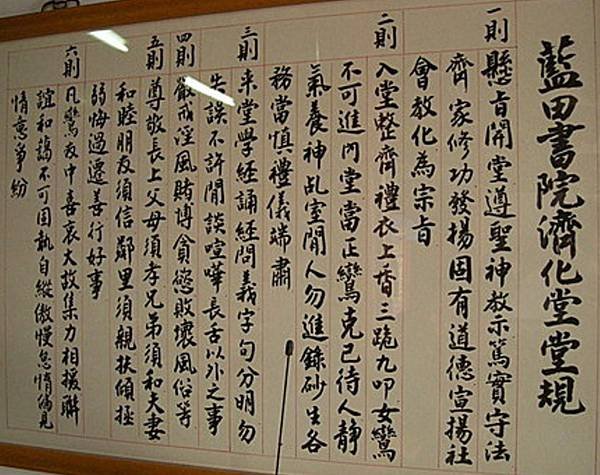 藍田書院濟化堂堂規
一則
懸旨開堂遵聖神教示篤實守法
齊家修功發揚固有道德宣揚社
會教化為宗旨
二則
入堂整齊禮衣上香三跪九叩女鸞
不可進內堂當正鸞克己待人靜
氣養神乩室閒人勿進錄砂生各
務當慎禮儀端肅
三則
來堂學經誦經問義字句分明勿
失誤不許閒談喧嘩長舌以外之事
四則
嚴戒淫風賭博貪慾敗壞風俗等
五則
尊敬長上父母須孝兄弟須和夫妻
和睦朋友須信鄰里須親扶傾拯
弱悔過遷善行好事
六則
凡鸞友中喜哀大故集力相援聯
誼和藹不可固執自縱傲慢怠惰偏見
情意爭紛